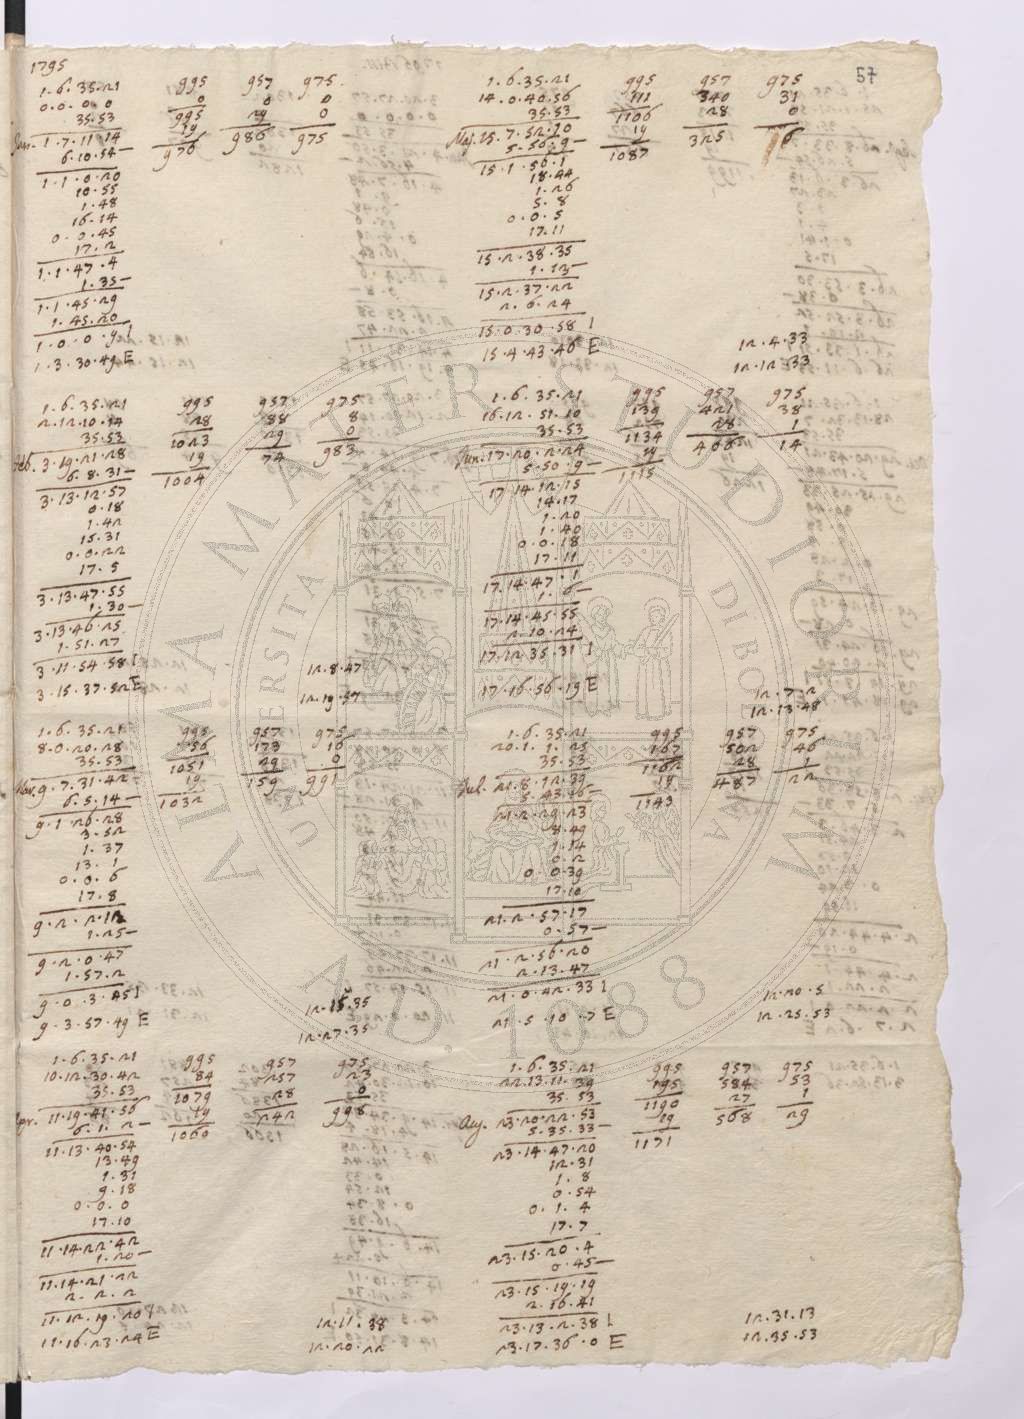 1795
57
1.6.35.21 995 957 975
0.0.0.0 0 0 0
35.53 995 29 0
Jan. 1.7.11.14 19 986 975
6.10.54– 976
1.1.0.20
10.55
1.48
16.14
0.0.45
17.2
1.1.47.4
1.35–
1.1.45.29
1.45.20
1.0.0.9 I
1.3.30.49 E
1.6.35.21 995 957 975
2.12.10.14 28 88 8
35.53 1023 29 0
Feb. 3.19.21.28 19 74 983
6.8.31– 1004
3.13.12.57
0.18
1.42
15.31
0.0.22
17.5
3.13.47.55
1.30–
3.13.46.25
1.51.27
3.11.54.58 I 12.8.47
3.15.37.52 E 12.19.57
1.6.35.21 995 957 975
8.0.20.28 56 173 16
35.53 1051 29 0
Mar. 9.7.31.42 19 159 991
6.5.14– 1032
9.1.26.28
3.52
1.37
13.1
0.0.6
17.8
9.2.2.12
1.25–
9.2.0.47
1.57.2
9.0.3.45 I 12.15.35
9.3.57.49 E 12.27.35
1.6.35.21 995 957 975
10.12.30.42 84 257 23
35.53 1079 28 0
Apr. 11.19.41.56 19 242 998
6.1.2– 1060
11.13.40.54
13.49
1.31
9.18
0.0.0
17.10
11.14.22.42
1.20–
11.14.21.22
2.2.2
11.12.19.20 I 12.11.38
11.16.23.24 E 12.20.22
1.6.35.21 995 957 975
14.0.40.56 111 340 31
35.53 1106 28 0
Maj. 15.7.52.10 19 325 6
5.56.9– 1087
15.1.56.1
18.44
1.26
5.8
0.0.5
17.11
15.2.38.35
1.13–
15.2.37.22
2.6.24
15.0.30.58 I 12.4.33
15.4.43.46 E 12.12.33
1.6.35.21 995 957 975
16.12.51.10 139 421 38
35.53 1134 28 1
Jun. 17.20.2.24 19 408 14
5.50.9– 1115
17.14.12.15
14.17
1.20
1.40
0.0.18
17.11
17.14.47.1
1.6–
17.14.45.55
2.10.24
17.12.35.31 I
17.16.56.19 E 12.7.2
12.13.48
1.6.35.21 995 957 975
20.1.1.25 167 502 46
35.53 1162 28 1
Jul. 21.8.12.39 19 487 22
5.43.16– 1143
21.2.29.23
8.49
1.14
0.2
0.0.39
17.10
21.2.57.17
0.57–
21.2.56.20
2.13.47
21.0.42.33 I 12.20.5
21.5.10.7 E 12.25.53
1.6.35.21 995 957 975
22.13.11.39 195 584 53
35.53 1190 27 1
Aug. 23.20.22.53 19 568 29
5.35.33– 1171
23.14.47.20
12.31
1.8
0.54
0.1.4
17.7
23.15.20.4
0.45–
23.15.19.19
2.16.41
23.13.2.38 I 12.31.13
23.17.36.0 E 12.35.53
ALMA MATER STUDIORUM
UNIVERSITÀ DI BOLOGNA
A.D. 1088